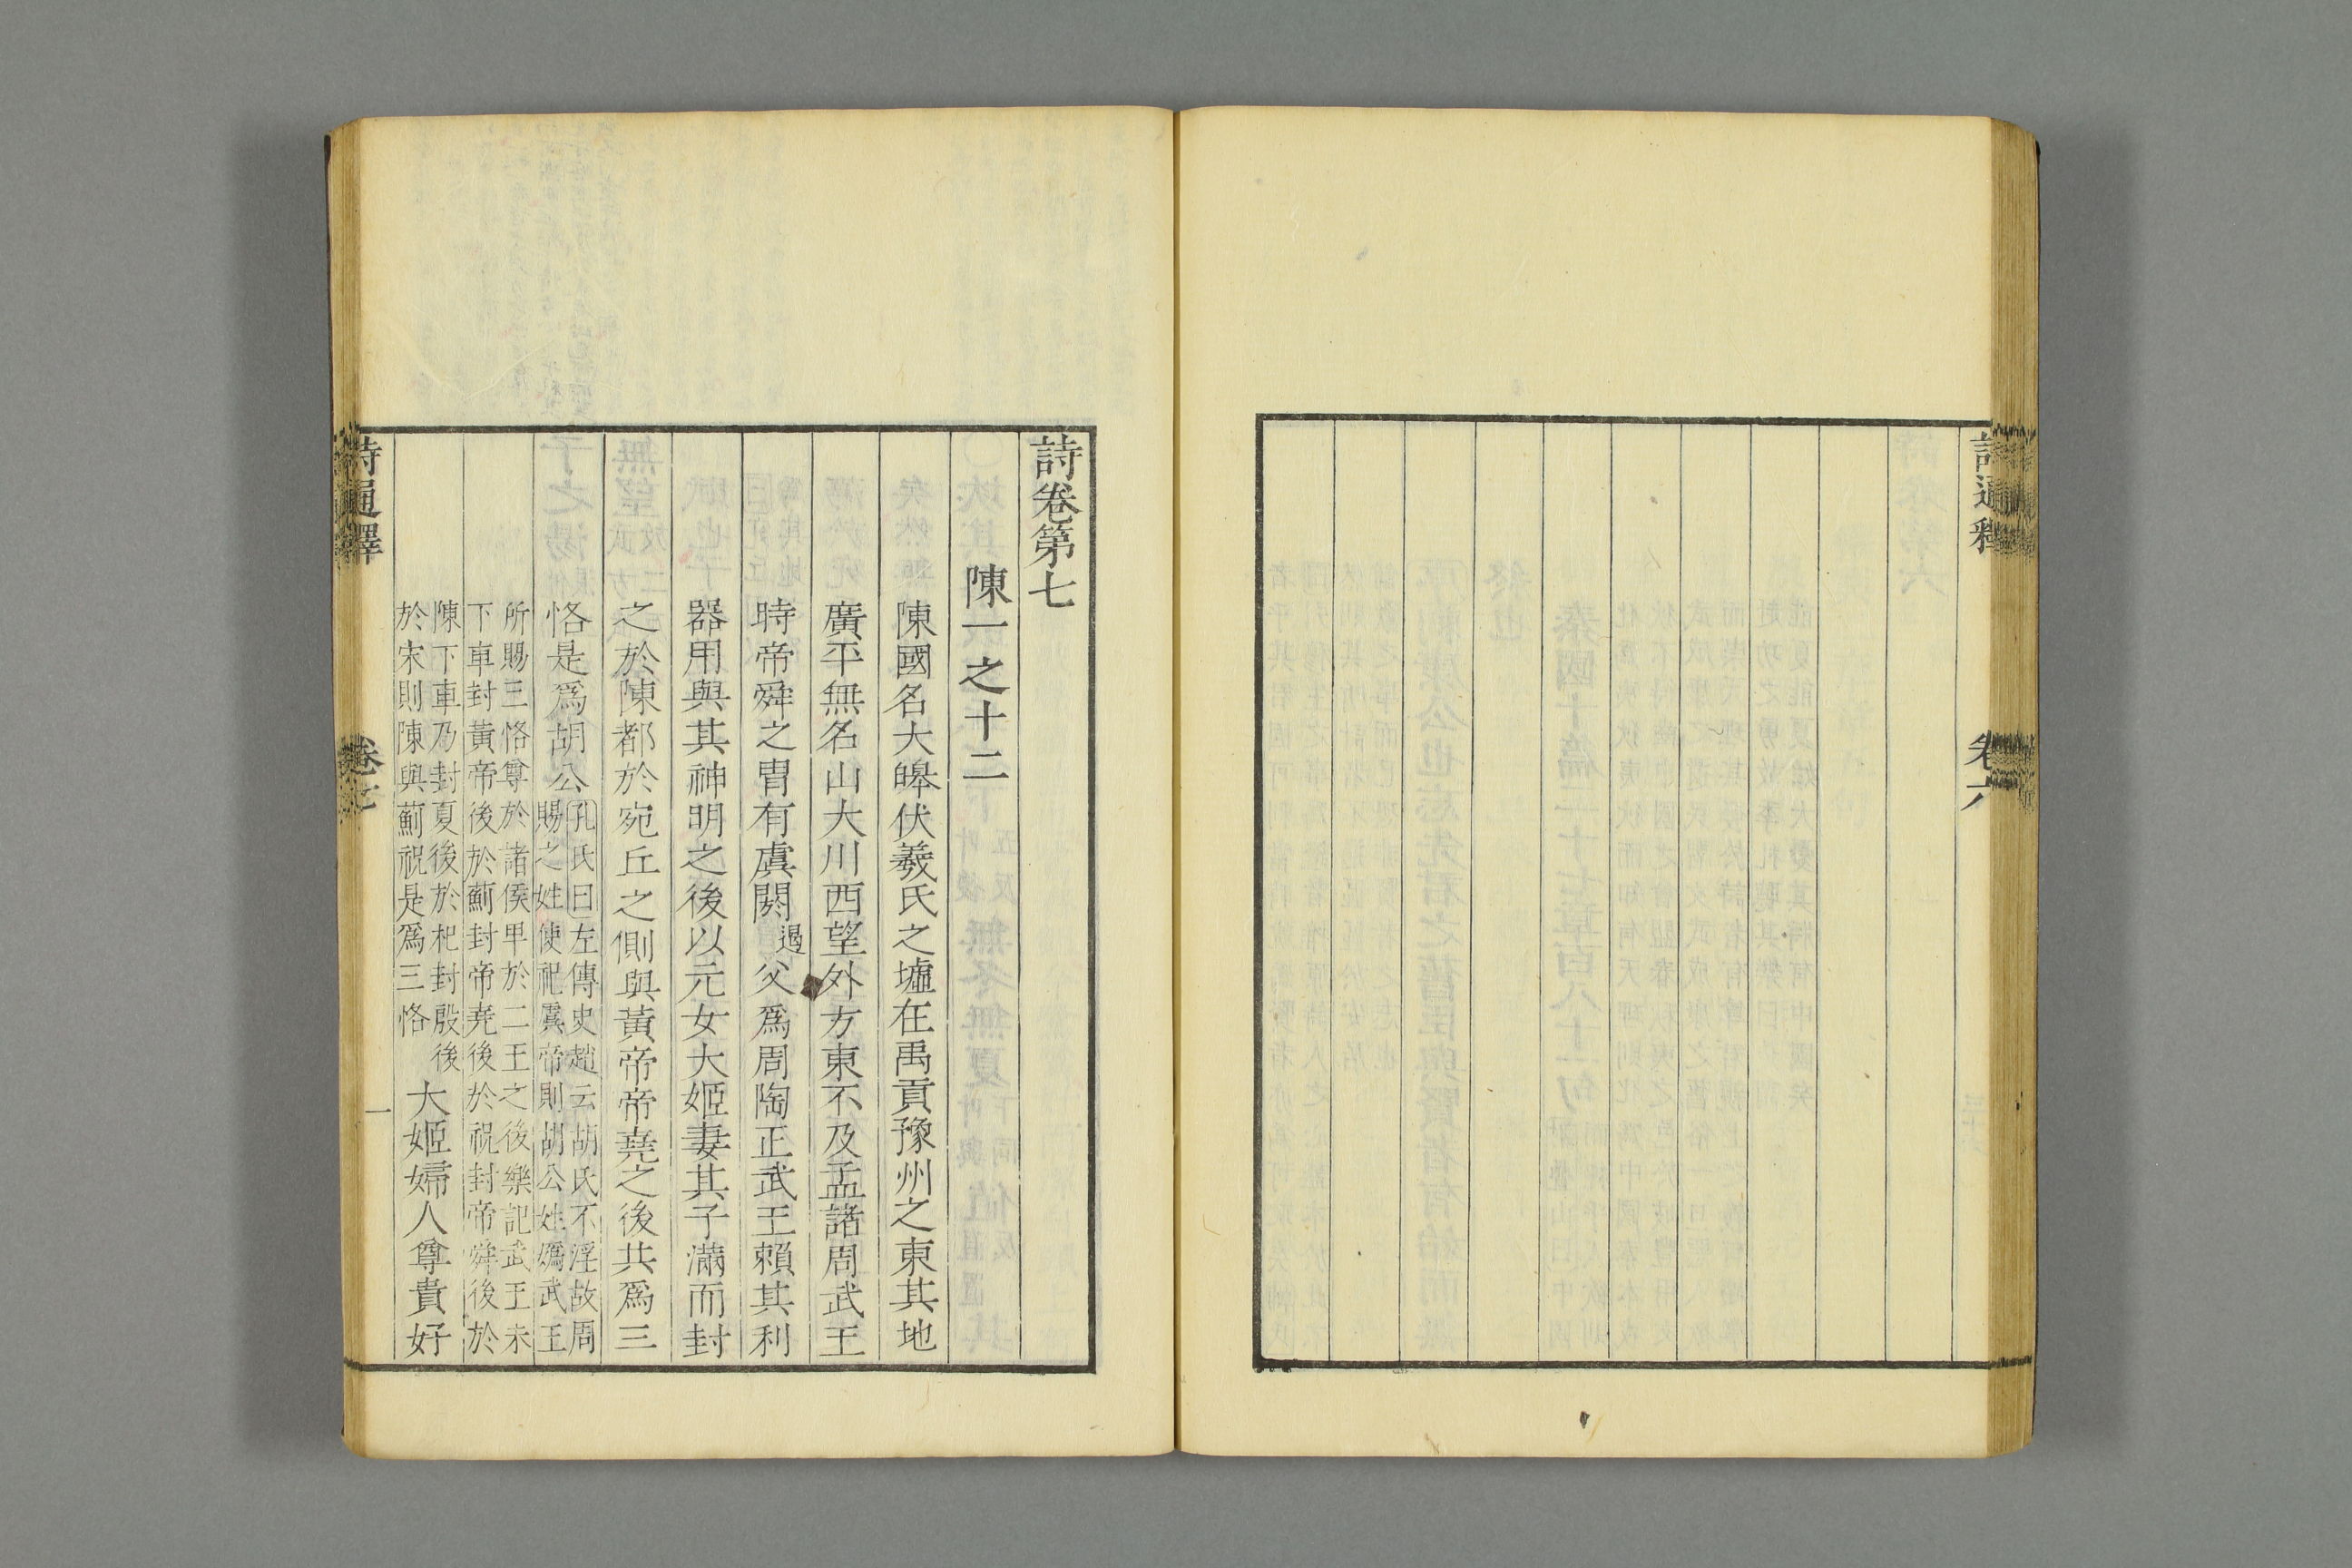 卷六
詩卷第七
陳一之十二
陳國名大皥伏羲氏之墟在禹貢豫州之東其地
廣平無名山大川西望外方東不及孟諸周武王
時帝舜之胄有虞閼遏父爲周陶正武王賴其利
器用與其神明之後以元女大姬妻其子滿而封
之於陳都於宛丘之側與黃帝帝堯之後共爲三
恪是爲胡公
孔氏曰左傳史趙云胡氏不淫故周
賜之姓使祀虞帝則胡公姓嬀武王
所賜三恪尊於諸侯卑於二王之後樂記武王未
下車封黃帝後於薊封帝堯後於祝封帝舜後於
陳下車乃封夏後於杞封殷後
於宋則陳與薊祝是爲三恪
大姬婦人尊貴好
詩通釋
卷七
一